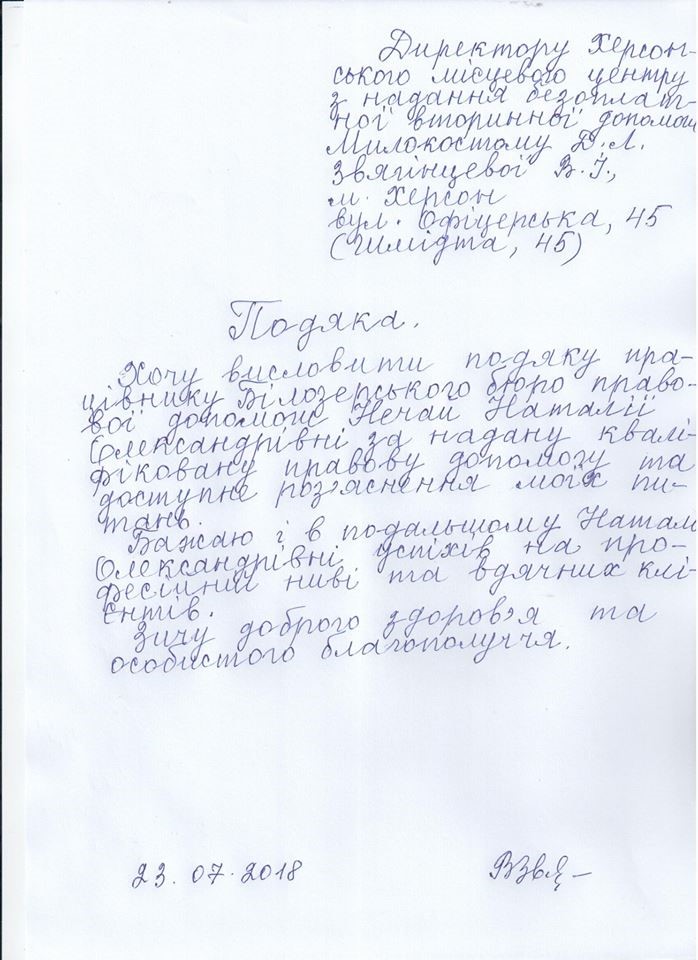 Директору Херсон-
ського місцевого центру
з надання безоплат-
ної вторинної допомоги
Милокостому Д.Л.
Звягінцевої В.І.,
м. Херсон
вул. Офіцерська, 45
(Шмідта, 45)
Подяка.
Хочу висловити подяку пра-
цівнику Білозерського бюро право-
вої допомоги Нечай Наталії
Олександрівні за надану квалі-
фіковану правову допомогу та
доступне роз'яснення моїх пи-
тань.
Бажаю і в подальшому Наталі
Олександрівні успіхів на про-
фесійній ниві та вдячних клі-
єнтів.
Зичу доброго здоров'я та
особистого благополуччя.
23.07.2018 ВЗвя